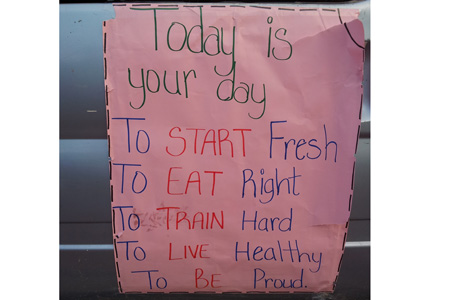 Today is
your day
To START Fresh
To EAT Right
To TRAIN Hard
To LIVE Healthy
To BE Proud.